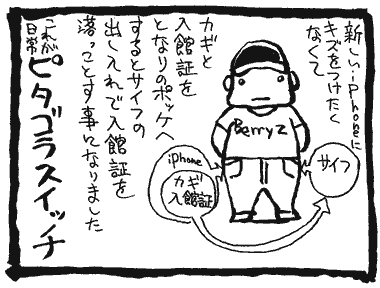 新しいiPhoneに
キズをつけたく
なくて
カギと
入館証を
となりのポッケへ
するとサイフの
出し入れで入館証を
落っことす事になりました
これが
日常
ピタゴラスイッチ
BerryZ
iPhone
カギ
入館証
サイフ